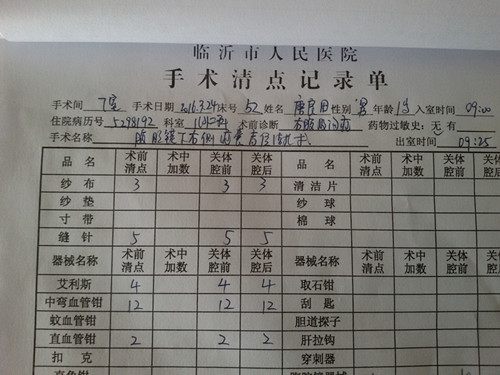 临沂市人民医院
手术清点记录单
手术间 7室 手术日期 2016.3.24 床号 52 姓名 性别 男 年龄 入室时间 09:00
住院病历号 5298192 科室 术前诊断 药物过敏史:无 有
手术名称 腹腔镜下右侧 术 出室时间 09:25
品名 术前清点 术中加数 关体腔前 关体腔后 品名 术前清点 术中加数 关体腔前
纱布 3 3 3 清洁片
纱垫 纱球
寸带 棉球
缝针 5 5 5
器械名称 术前清点 术中加数 关体腔前 关体腔后 器械名称 术前清点 术中加数 关体腔前
艾利斯 4 4 4 取石钳
中弯血管钳 12 12 12 刮匙
蚊血管钳 胆道探子
直血管钳 2 2 2 肝拉钩
扣克 穿刺器
直角钳